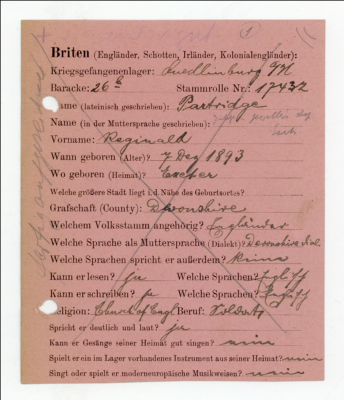 ①
Briten (Engländer, Schotten, Irländer, Kolonialengländer):
Kriegsgefangenenlager: Quedlinburg
Baracke: 26b Stammrolle Nr.: 17432
Name (lateinisch geschrieben): Partridge
Name (in der Muttersprache geschrieben):
Vorname: Reginald
Wann geboren (Alter)? 7 Dez 1893
Wo geboren (Heimat)? Exeter
Welche größere Stadt liegt i. d. Nähe des Geburtsortes?
Grafschaft (County): Devonshire
Welchem Volksstamm angehörig? Engländer
Welche Sprache als Muttersprache (Dialekt)? Devonshire Dial.
Welche Sprachen spricht er außerdem? keine
Kann er lesen? ja Welche Sprachen? Englisch
Kann er schreiben? ja Welche Sprachen? Englisch
Religion: Church of Engl. Beruf: Soldat
Spricht er deutlich und laut? ja
Kann er Gesänge seiner Heimat gut singen? nein
Spielt er ein im Lager vorhandenes Instrument aus seiner Heimat? nein
Singt oder spielt er moderneuropäische Musikweisen? nein